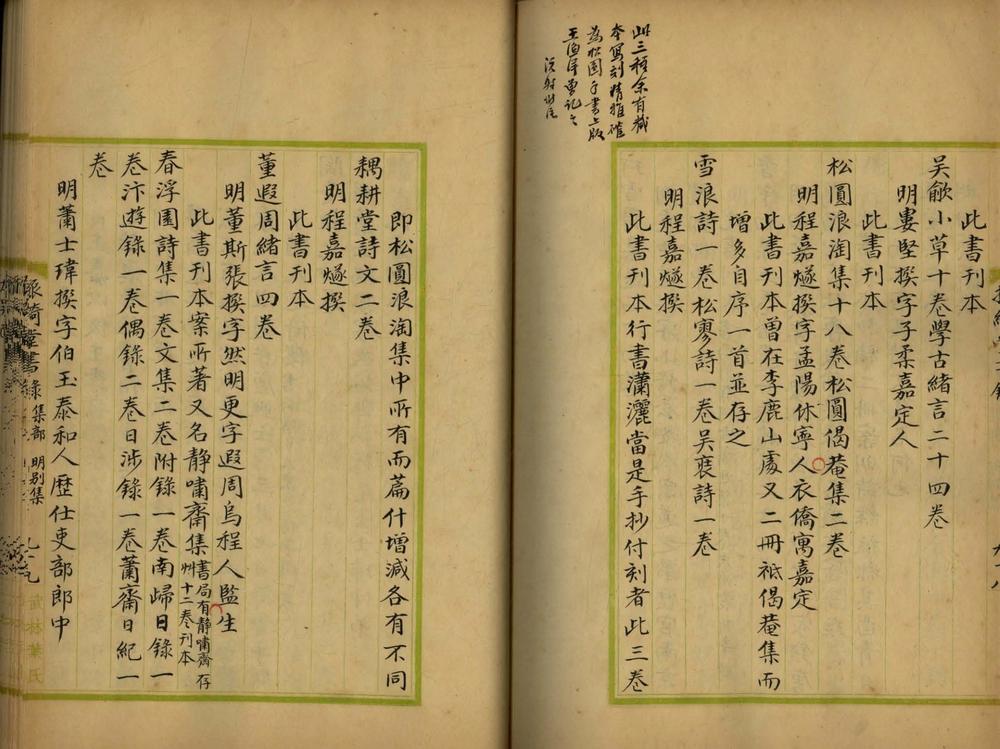 此書刊本
吴歈小草十卷學古緒言二十四卷
明婁堅撰字子柔嘉定人
此書刊本
松圓浪淘集十八卷松圓偈菴集二卷
明程嘉燧撰字孟陽休寧人衣僑寓嘉定
此書刊本曾在李鹿山處又二冊祗偈菴集而
增多自序一首並存之
雪浪詩一卷松寥詩一卷吴裝詩一卷
明程嘉燧撰
此書刊本行書瀟灑當是手抄付刻者此三卷
此三種余有藏
本寫刻精雅確
為松圓手書上版
王漁洋曾記之
即松圓浪淘集中所有而篇什增減各有不同
耦耕堂詩文二卷
明程嘉燧撰
此書刊本
董遐周緒言四卷
明董斯張撰字然明更字遐周烏程人監生
此書刊本案所著又名静嘯齋集書局有静嘯齋存
艸十二卷刊本
春浮園詩集一卷文集二卷附錄一卷南歸日錄一
卷汴遊錄一卷偶錄二卷日涉錄一卷蕭齋日紀一
卷
明蕭士瑋撰字伯玉泰和人歷仕吏部郎中
綺堂書錄 集部 明别集
武林葉氏